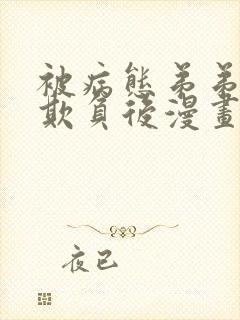 被病態弟弟
欺負後漫畫
夜已